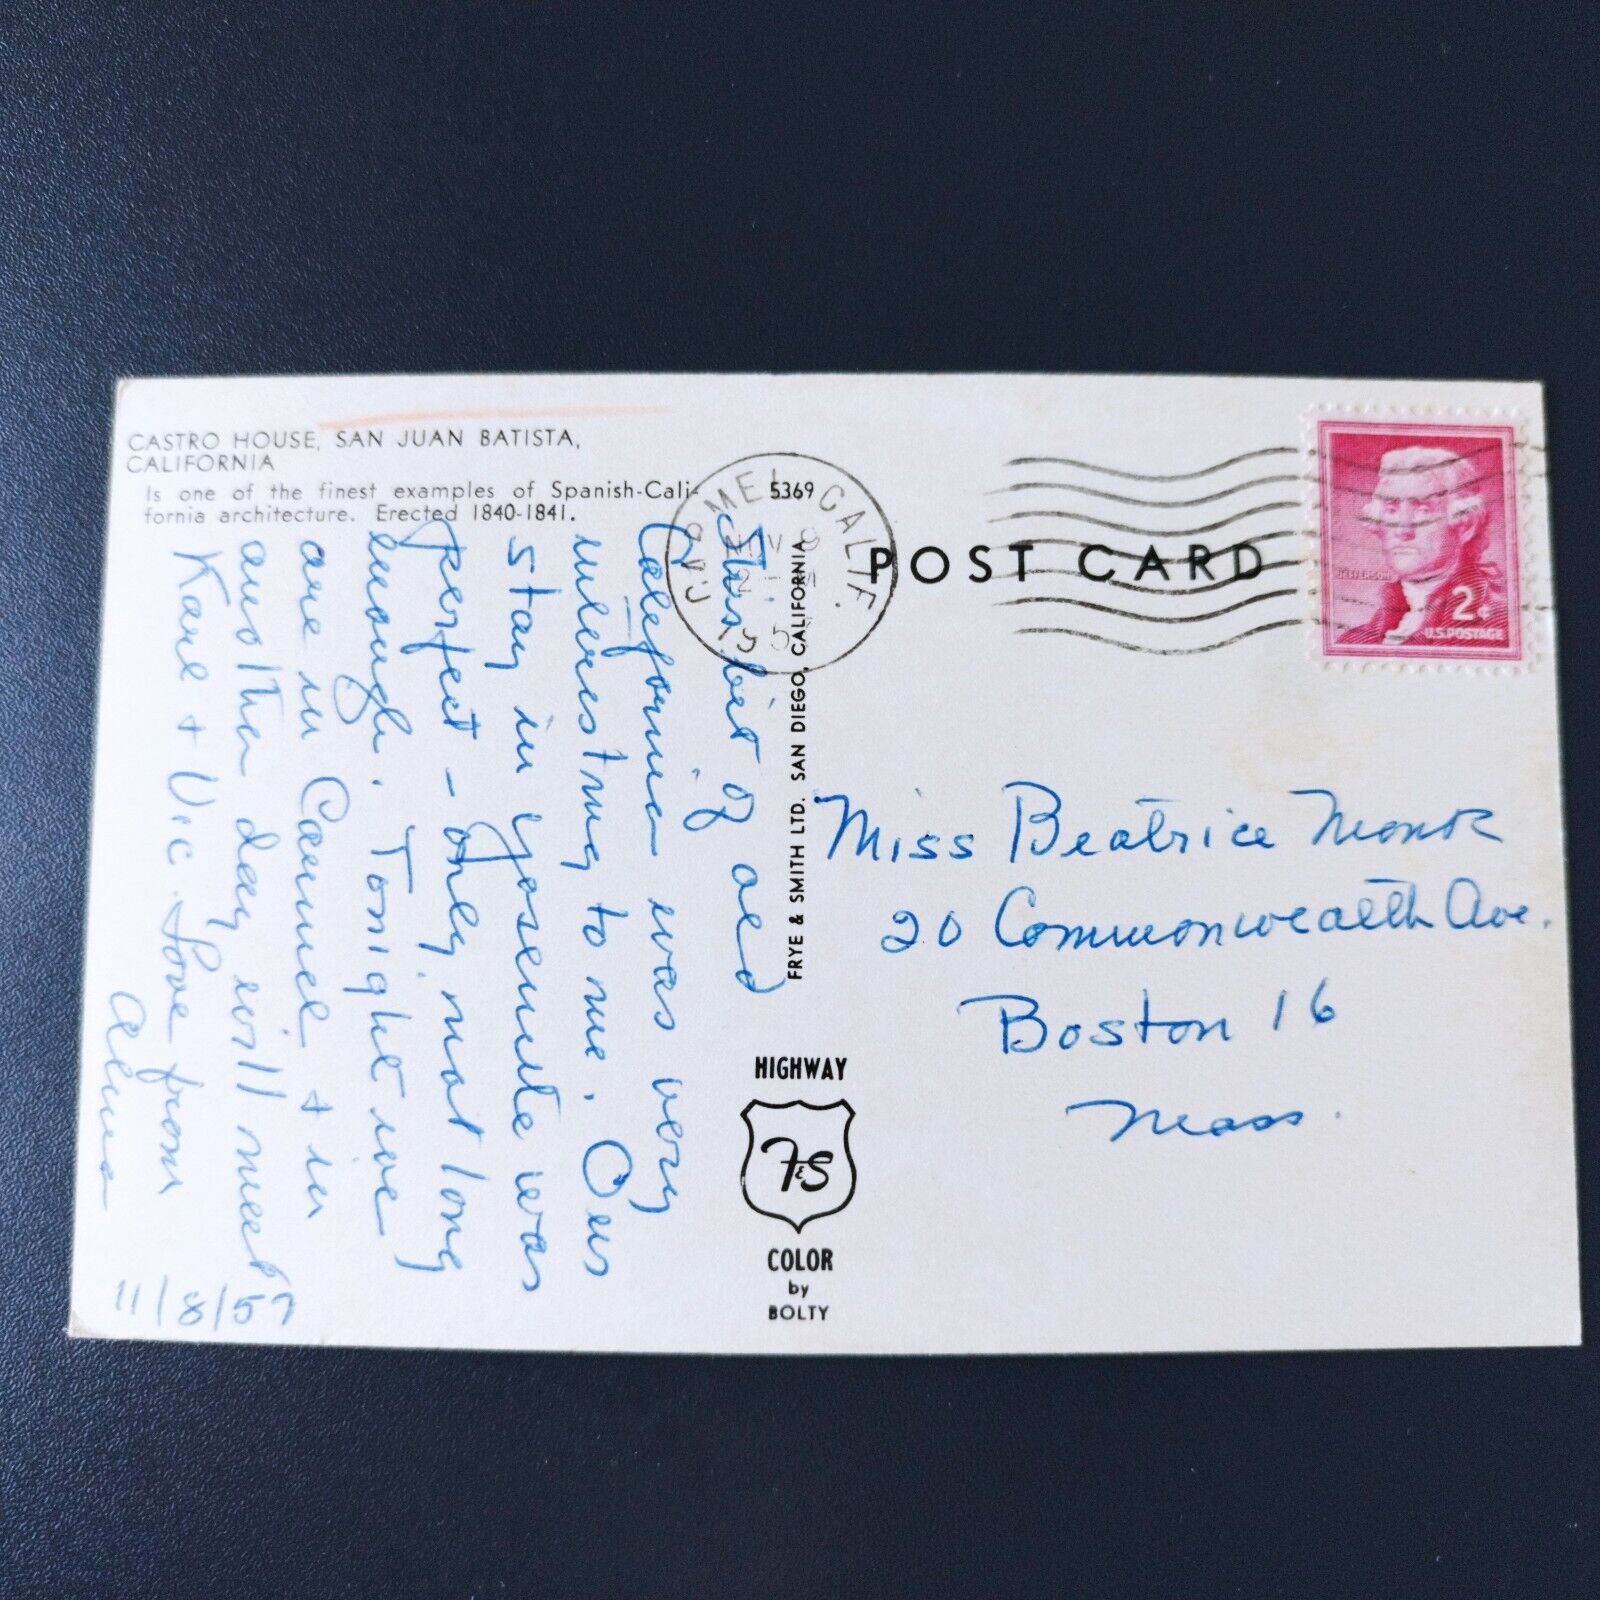 CASTRO HOUSE, SAN JUAN BATISTA,
CALIFORNIA
Is one of the finest examples of Spanish-Cali-
fornia architecture. Erected 1840-1841.
5369
CARMEL CALIF.
POST CARD
JEFFERSON
2¢
U.S. POSTAGE
This bit of old
California was very
interesting to me. Our
stay in Yosemite was
perfect - only not long
enough. Tonight we
are in Carmel & in
another day will meet
Karl & Vic. Love from
Alma
11/8/57
FRYE & SMITH LTD. SAN DIEGO, CALIFORNIA
HIGHWAY
F&S
COLOR
by
BOLTY
Miss Beatrice Monk
20 Commonwealth Ave.
Boston 16
Mass.